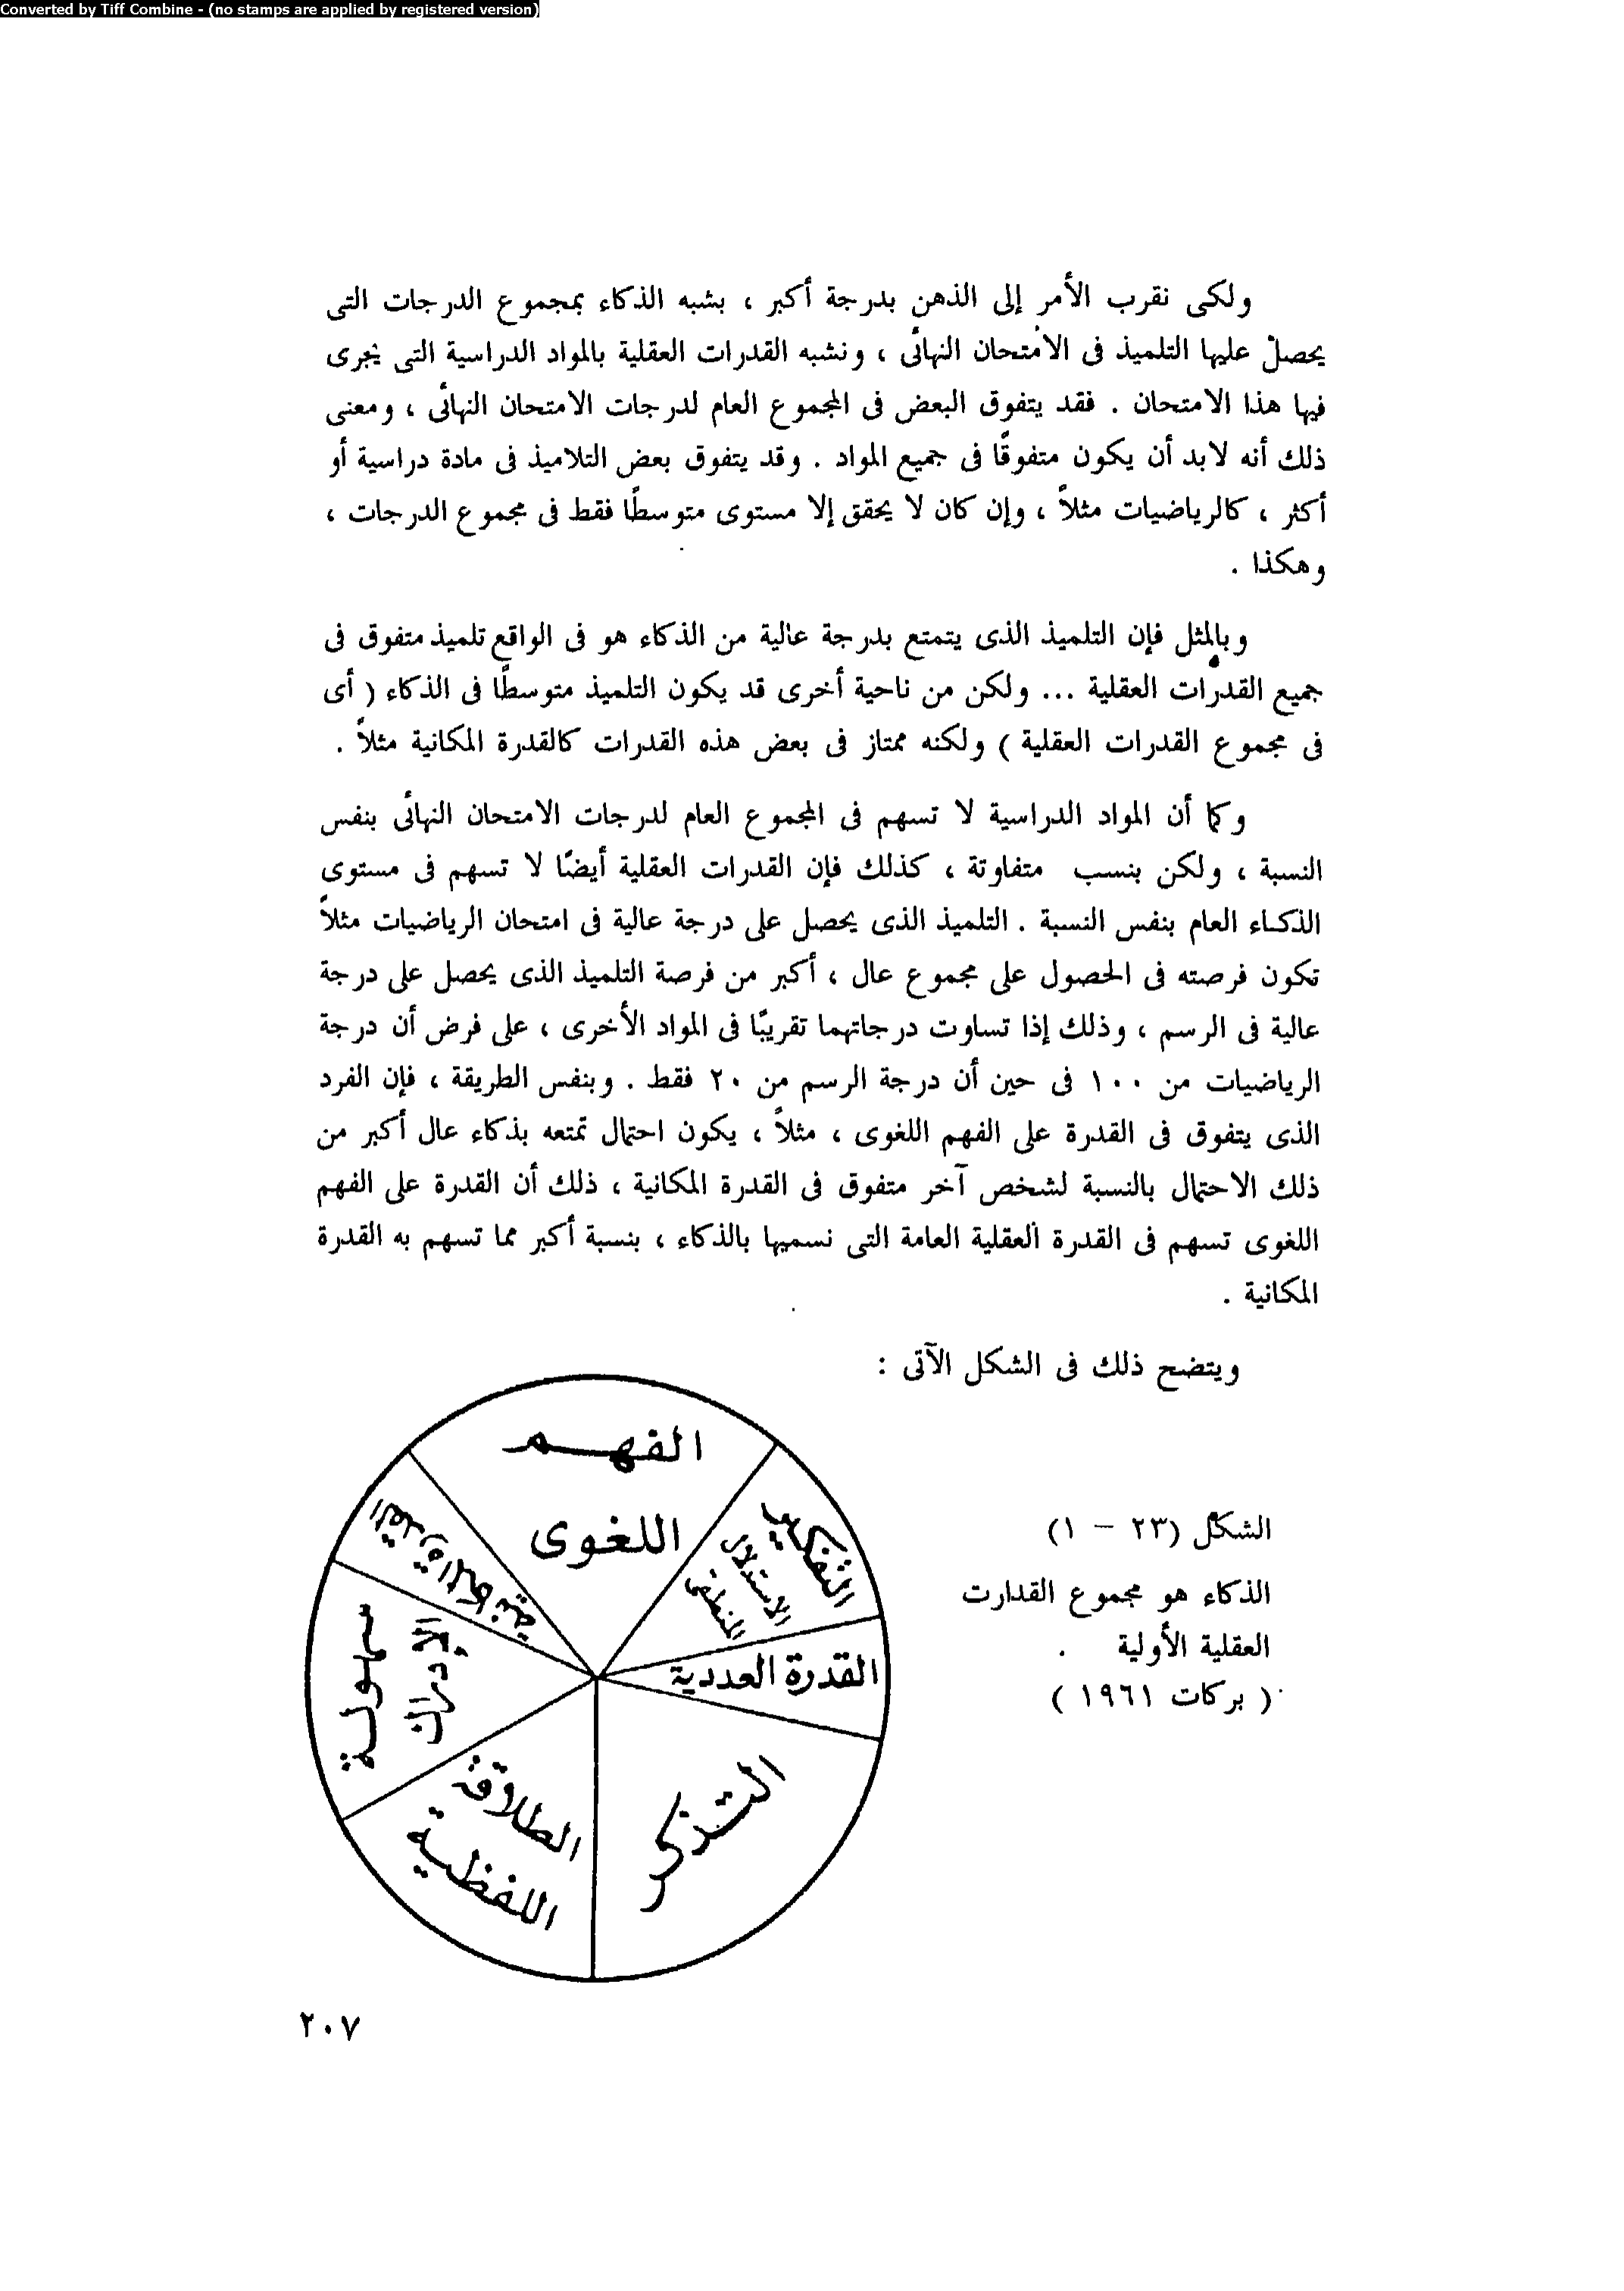 Converted by Tiff Combine - (no stamps are applied by registered version)
ولكى نقرب الأمر إلى الذهن بدرجة أكبر ، بشبه الذكاء بمجموع الدرجات التى
يحصل عليها التلميذ فى الامتحان النهائى ، ونشبه القدرات العقلية بالمواد الدراسية التى يجرى
فيها هذا الامتحان . فقد يتفوق البعض فى المجموع العام لدرجات الامتحان النهائى ، ومعنى
ذلك أنه لابد أن يكون متفوقًا فى جميع المواد . وقد يتفوق بعض التلاميذ فى مادة دراسية أو
أكثر ، كالرياضيات مثلاً ، وإن كان لا يحقق إلا مستوى متوسطًا فقط فى مجموع الدرجات ،
وهكذا .
وبالمثل فإن التلميذ الذى يتمتع بدرجة عالية من الذكاء هو فى الواقع تلميذ متفوق فى
جميع القدرات العقلية ... ولكن من ناحية أخرى قد يكون التلميذ متوسطًا فى الذكاء ( أى
فى مجموع القدرات العقلية ) ولكنه ممتاز فى بعض هذه القدرات كالقدرة المكانية مثلاً .
وكما أن المواد الدراسية لا تسهم فى المجموع العام لدرجات الامتحان النهائى بنفس
النسبة ، ولكن بنسب متفاوتة ، كذلك فإن القدرات العقلية أيضًا لا تسهم فى مستوى
الذكاء العام بنفس النسبة . التلميذ الذى يحصل على درجة عالية فى امتحان الرياضيات مثلاً
تكون فرصته فى الحصول على مجموع عال ، أكبر من فرصة التلميذ الذى يحصل على درجة
عالية فى الرسم ، وذلك إذا تساوت درجاتهما تقريبًا فى المواد الأخرى ، على فرض أن درجة
الرياضيات من ١٠٠ فى حين أن درجة الرسم من ٢٠ فقط . وبنفس الطريقة ، فإن الفرد
الذى يتفوق فى القدرة على الفهم اللغوى ، مثلاً ، يكون احتمال تمتعه بذكاء عال أكبر من
ذلك الاحتمال بالنسبة لشخص آخر متفوق فى القدرة المكانية ، ذلك أن القدرة على الفهم
اللغوى تسهم فى القدرة العقلية العامة التى نسميها بالذكاء ، بنسبة أكبر مما تسهم به القدرة
المكانية .
ويتضح ذلك فى الشكل الآتى :
الشكل (٢٣ – ١)
الذكاء هو مجموع القدارت
العقلية الأولية .
( بركات ١٩٦١ )
الفهم
اللغوى
التفكير
الاستدلال
المنطقى
القدرة العددية
التذكر
الطلاقة
اللفظية
سهولة
الأدراك
القدرة المكانية
٢٠٧